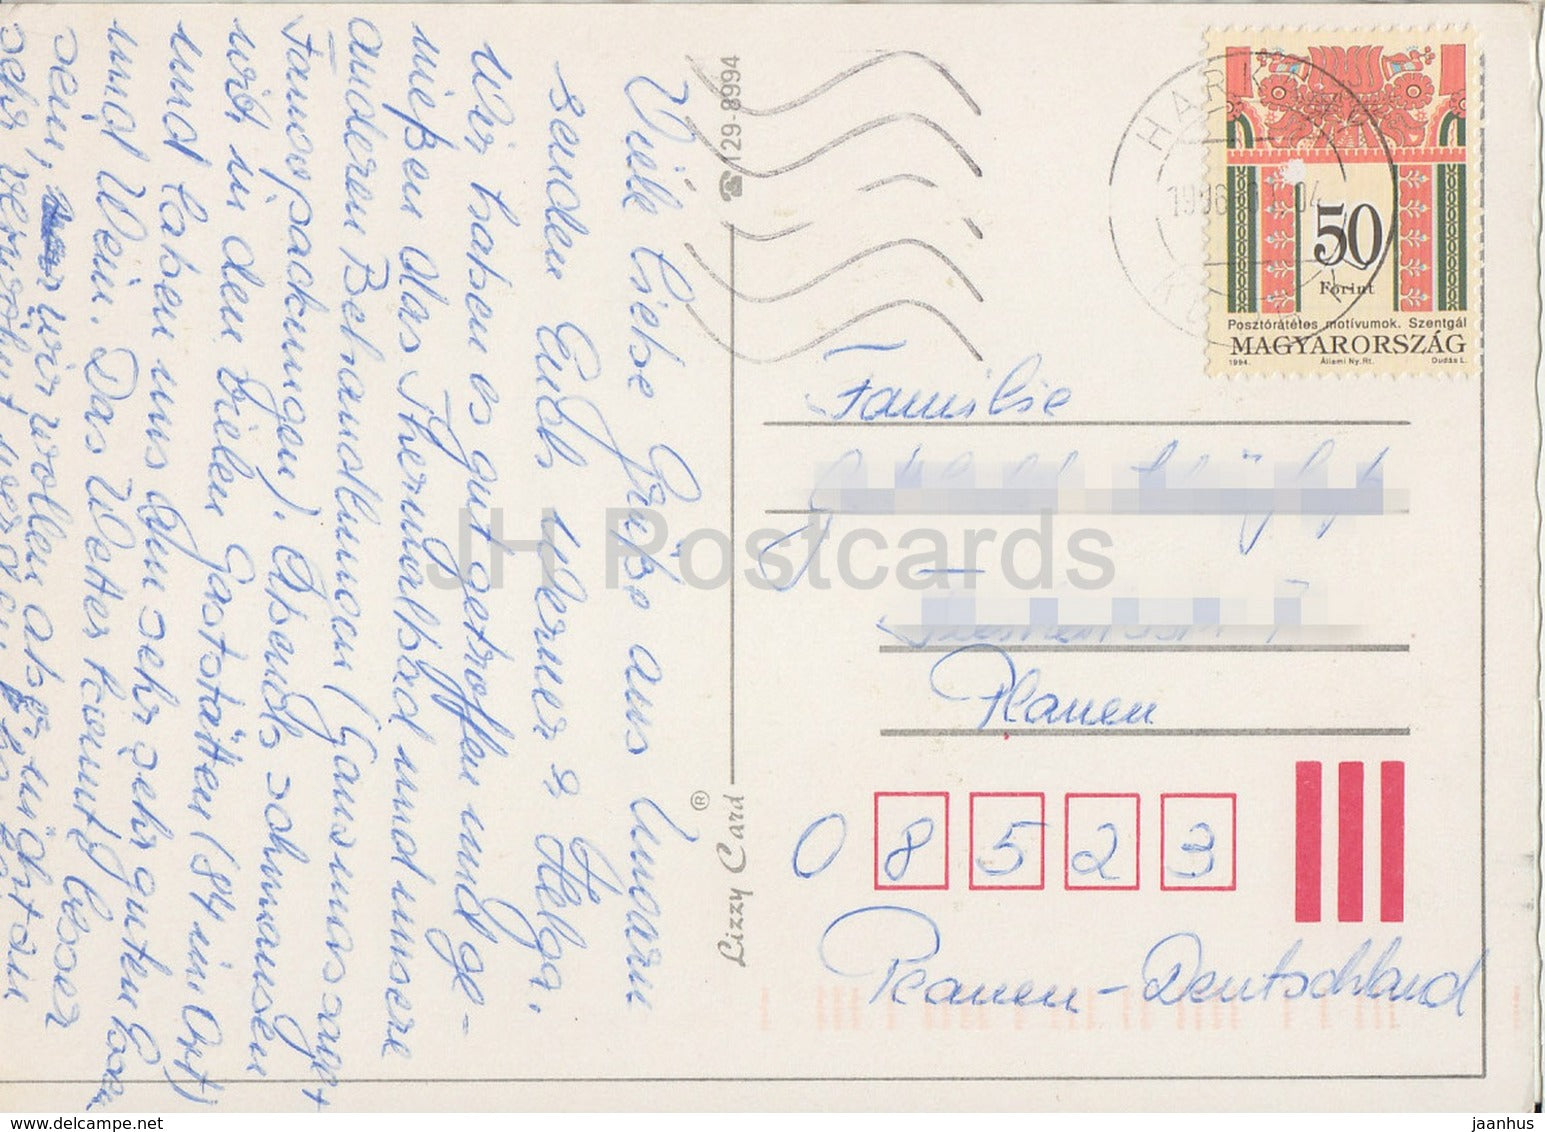 Viele liebe Grüße aus Ungarn
senden Euch Werner & Helga.
Wir haben es gut getroffen und ge-
nießen das Thermalbad und unsere
anderen Behandlungen (Ganzmassage +
Fangopackungen). Abends schmausen
wir in den vielen Gaststätten (84 im Ort)
und laben uns am sehr sehr guten Essen
und Wein. Das Wetter könnte besser
sein, wir wollen aber nicht
sehr verwöhnt werden.
Lizzy Card ®
☎ 129-8994
HARKÁNY
1996
50
Forint
Posztórátétes motívumok. Szentgál
MAGYARORSZÁG
1994. Állami Ny. Rt. Dudás L.
Familie
Plauen
08523
Plauen - Deutschland
JH Postcards
www.jhpostcards.com
jaanhus